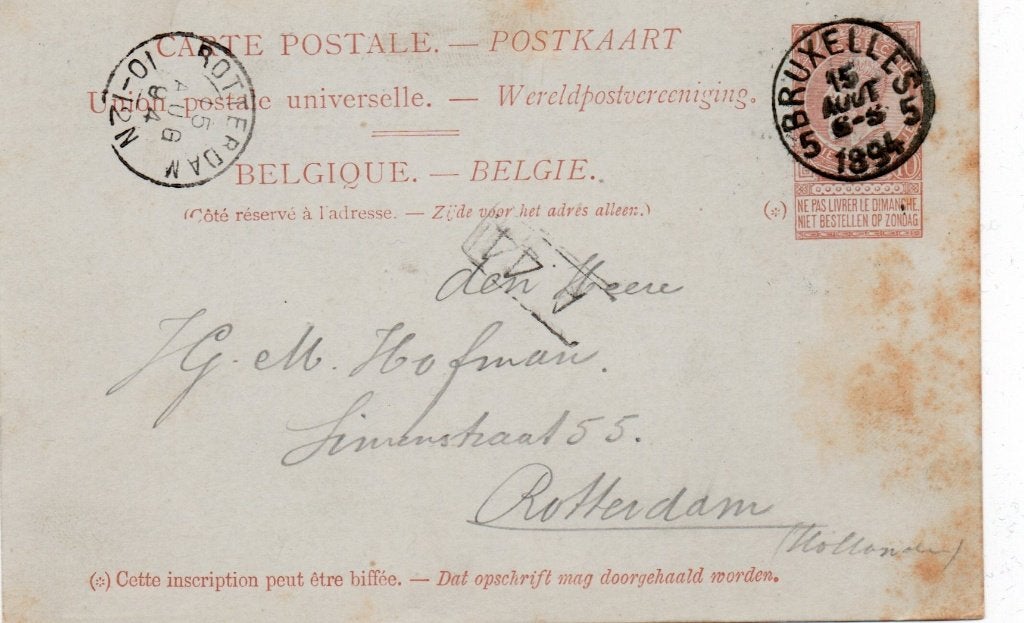 CARTE POSTALE. — POSTKAART
Union postale universelle. — Wereldpostvereeniging.
BELGIQUE. — BELGIE.
(Côté réservé à l'adresse. — Zijde voor het adres alleen.)
ROTTERDAM
15
AUG
94
N 12-01
5 BRUXELLES 5
15
AOUT
1894
10
(*)
NE PAS LIVRER LE DIMANCHE.
NIET BESTELLEN OP ZONDAG
den Heere
J G. M. Hofman.
55.
Rotterdam
(Holland)
(*) Cette inscription peut être biffée. — Dat opschrift mag doorgehaald worden.